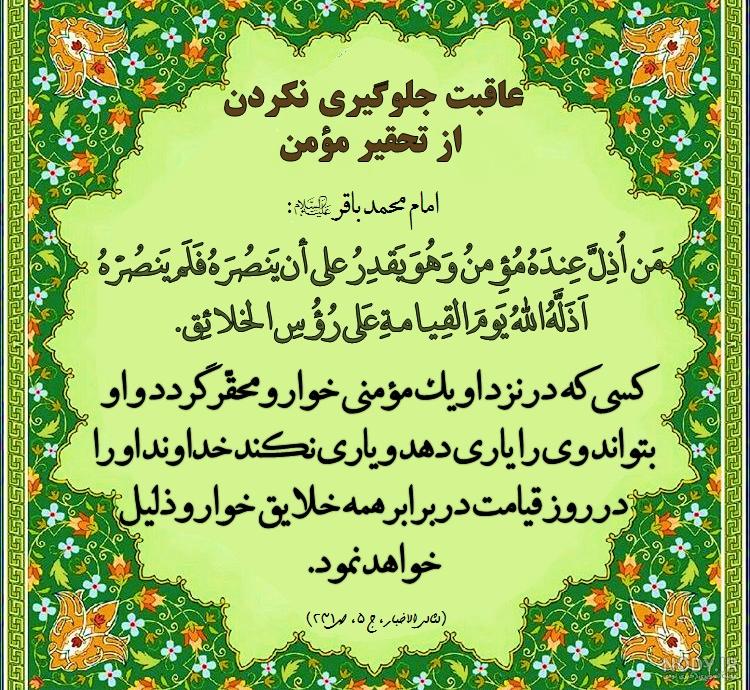 عاقبت جلوگیری نکردن
از تحقیر مؤمن
امام محمد باقر علیه‌السلام:
مَن اُذِلَّ عِندَهُ مُؤِمنُ وَهُوَ یَقدِرُ علی أن یَنصُرَهُ فَلَم یَنصُرْهُ
اَذَلَّهُ اللهُ یَومَ القِیامةِ عَلی رُؤُسِ الخلائِق.
کسی که در نزد او یك مؤمنی خوار و محقّر گردد و او
بتواند وی را یاری دهد و یاری نکند خداوند او را
در روز قیامت در برابر همه خلایق خوار و ذلیل
خواهد نمود.
(لئالی الاخبار، ج ۵، ص ۲۳۱)